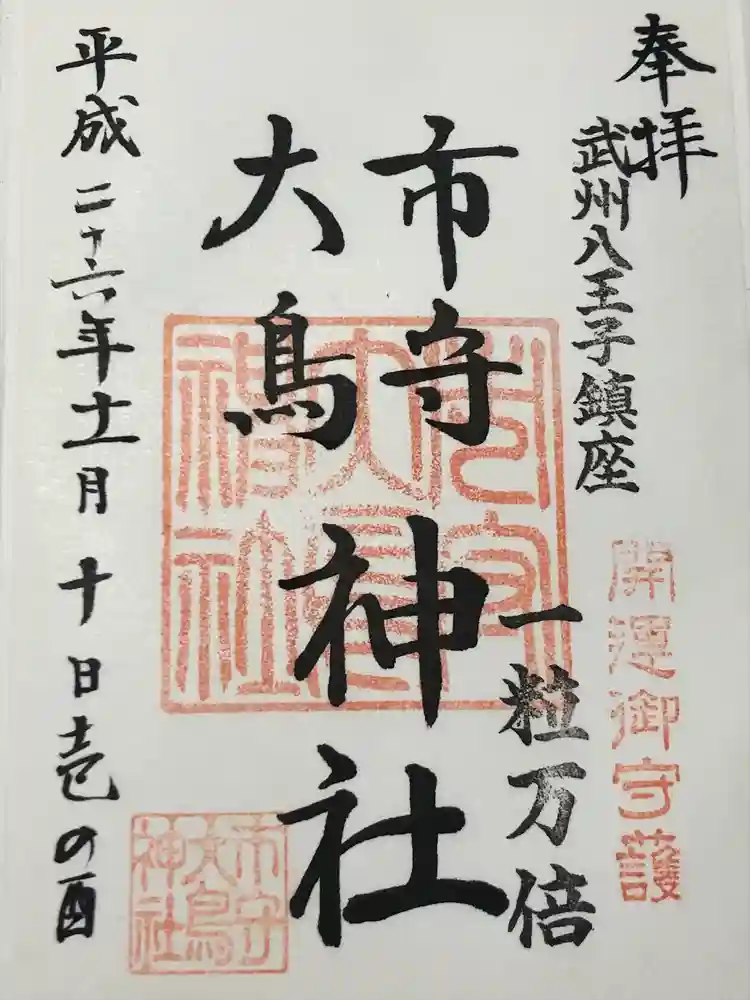 奉拝
武州八王子鎮座
開運御守護
一粒万倍
市守
大鳥
神社
平成二十六年十一月十日壱の酉
市守
大鳥
神社